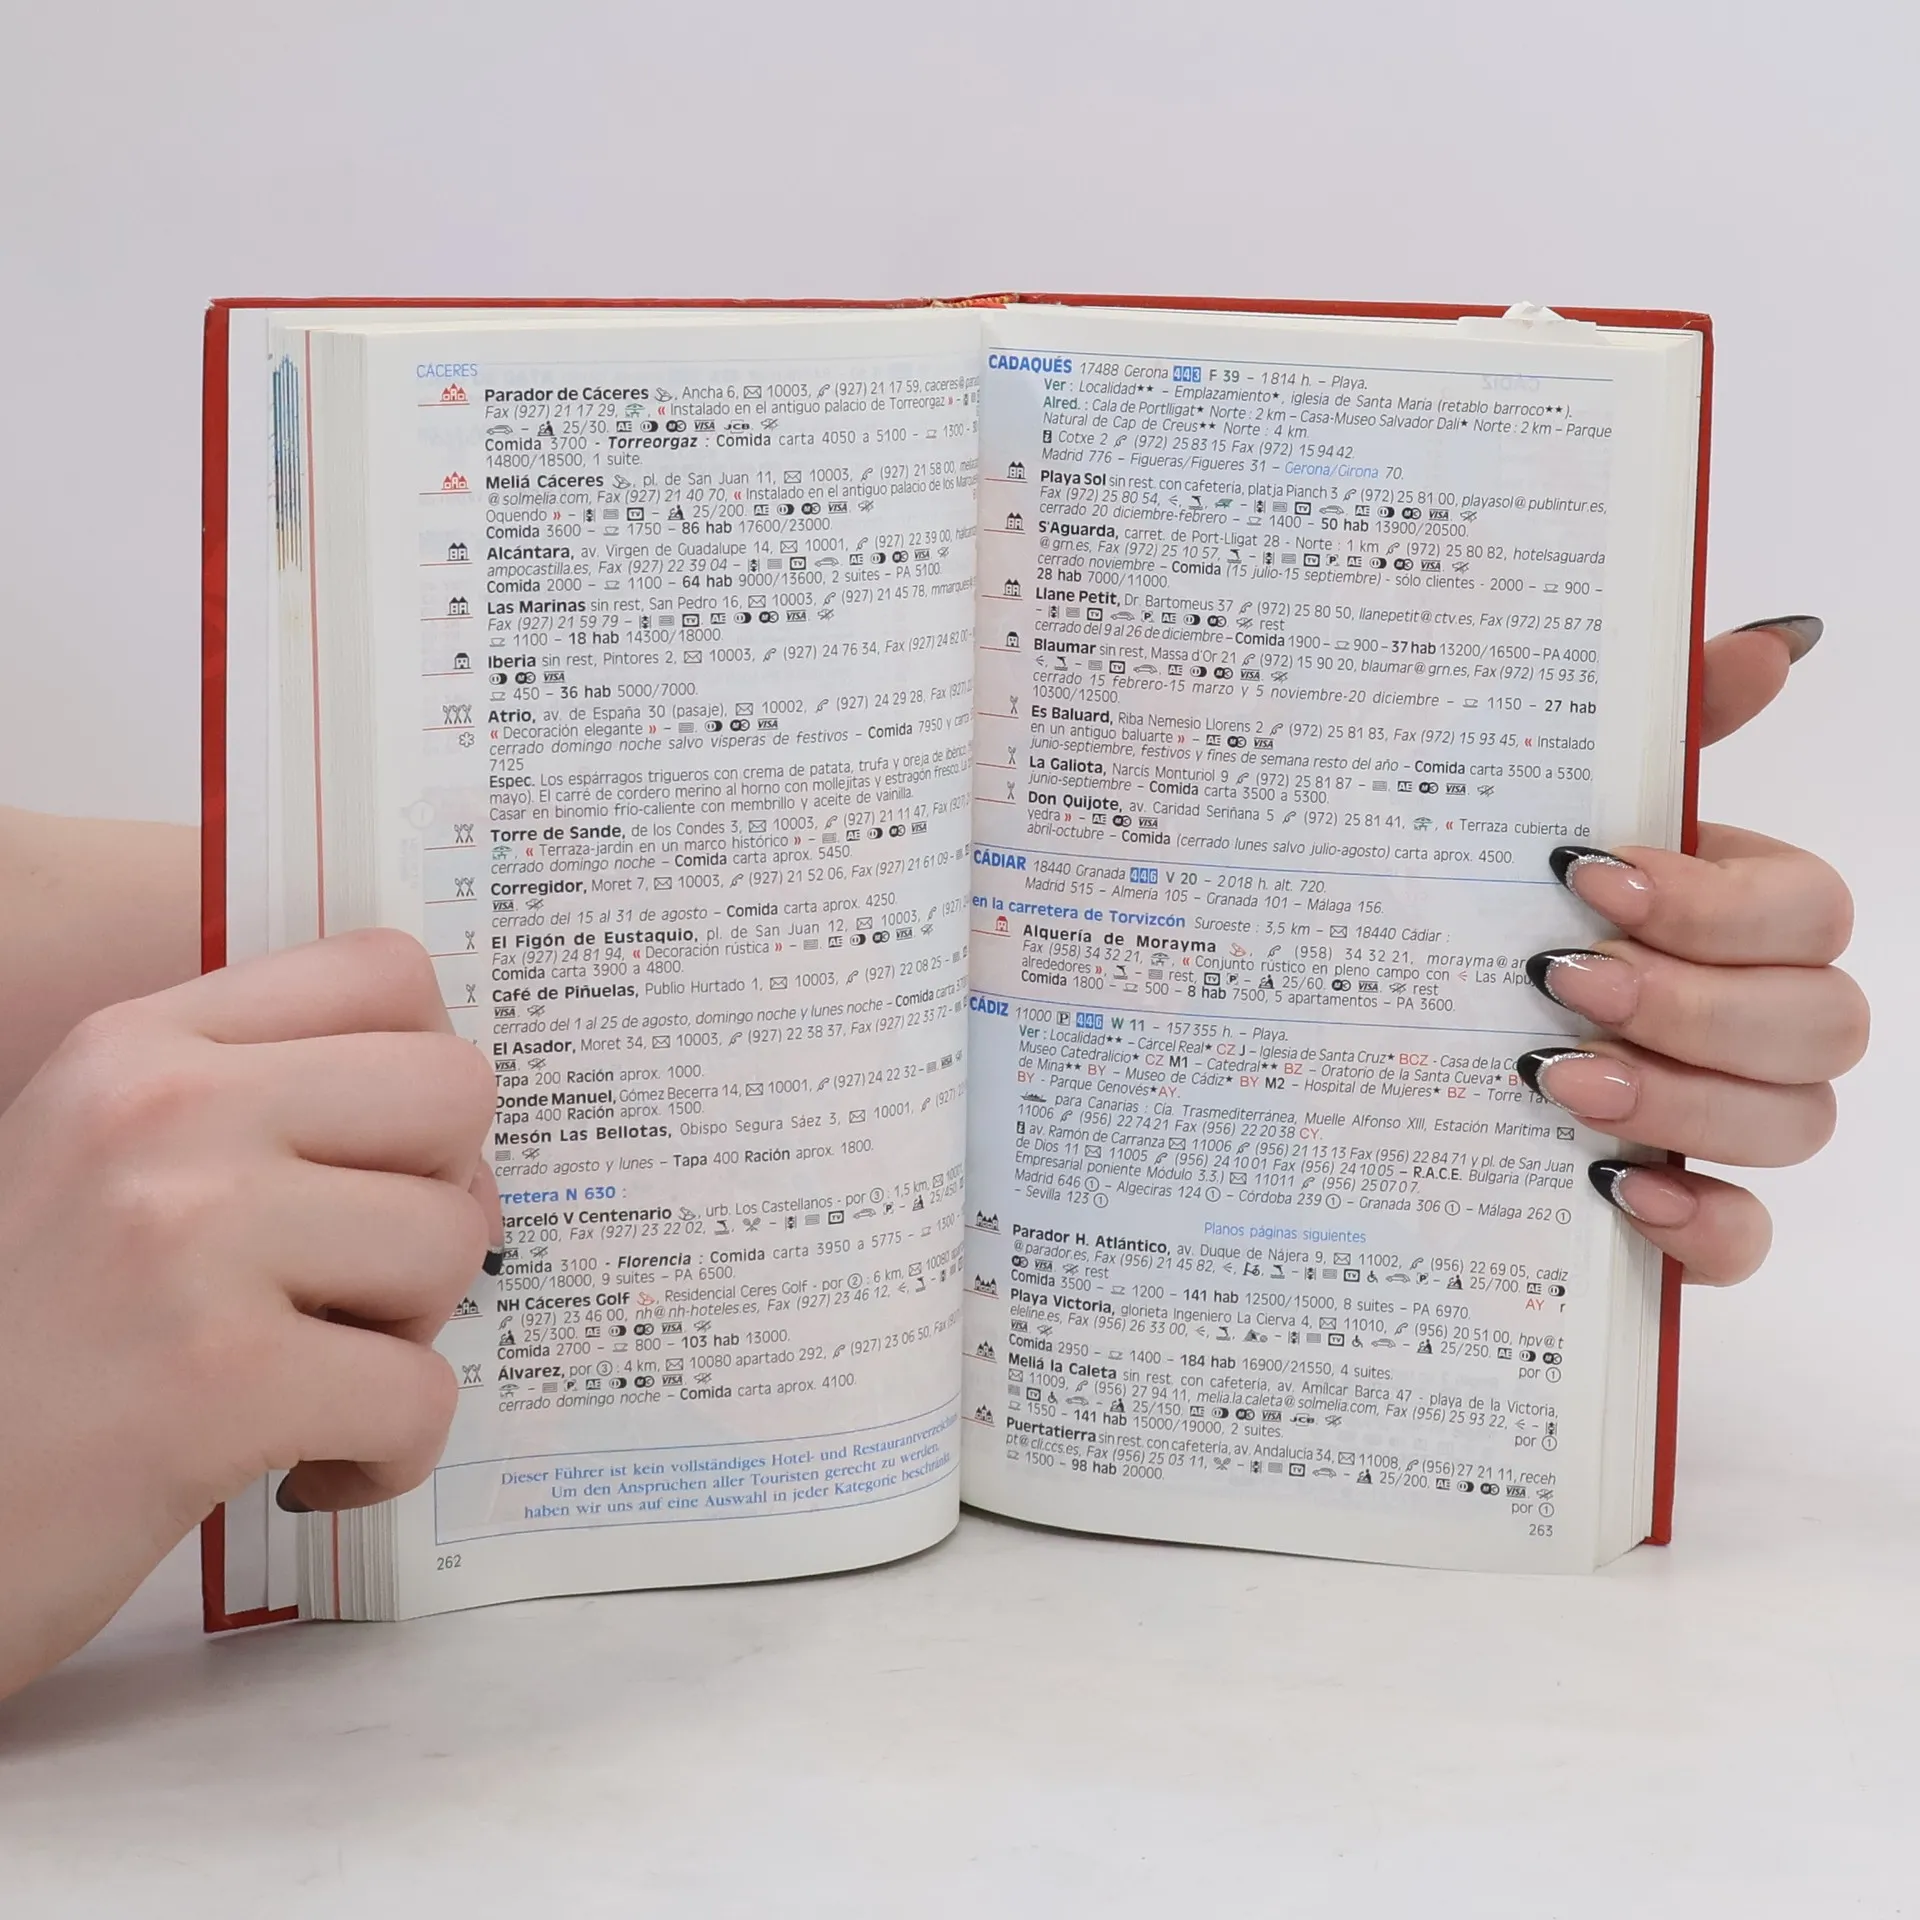 CÁCERES
Parador de Cáceres, Ancha 6, 10003, (927) 21 17 59, caceres@
Fax (927) 21 17 29, « Instalado en el antiguo palacio de Torreorgaz » –
– 25/30. AE VISA JCB.
Comida 3700 - Torreorgaz : Comida carta 4050 a 5100 – 1300 -
14800/18500, 1 suite.
Meliá Cáceres, pl. de San Juan 11, 10003, (927) 21 58 00,
@solmelia.com, Fax (927) 21 40 70, « Instalado en el antiguo palacio de los
Oquendo » – TV – 25/200. AE VISA.
Comida 3600 – 1750 – 86 hab 17600/23000.
Alcántara, av. Virgen de Guadalupe 14, 10001, (927) 22 39 00,
ampocastilla.es, Fax (927) 22 39 04 – TV. AE VISA
Comida 2000 – 1100 – 64 hab 9000/13600, 2 suites – PA 5100.
Las Marinas sin rest, San Pedro 16, 10003, (927) 21 45 78,
Fax (927) 21 59 79 – TV. AE VISA.
1100 – 18 hab 14300/18000.
Iberia sin rest, Pintores 2, 10003, (927) 24 76 34, Fax (927) 24 82 00 –
VISA
450 – 36 hab 5000/7000.
Atrio, av. de España 30 (pasaje), 10002, (927) 24 29 28, Fax (927)
« Decoración elegante » – VISA
cerrado domingo noche salvo vísperas de festivos – Comida 7950 y carta
7125
Espec. Los espárragos trigueros con crema de patata, trufa y oreja de ibérico
mayo). El carré de cordero merino al horno con mollejitas y estragón fresco. La
Casar en binomio frío-caliente con membrillo y aceite de vainilla.
Torre de Sande, de los Condes 3, 10003, (927) 21 11 47, Fax (927)
« Terraza-jardín en un marco histórico » – AE VISA
cerrado domingo noche – Comida carta aprox. 5450.
Corregidor, Moret 7, 10003, (927) 21 52 06, Fax (927) 21 61 09 –
VISA.
cerrado del 15 al 31 de agosto – Comida carta aprox. 4250.
El Figón de Eustaquio, pl. de San Juan 12, 10003, (927)
Fax (927) 24 81 94, « Decoración rústica » – AE VISA.
Comida carta 3900 a 4800.
Café de Piñuelas, Publio Hurtado 1, 10003, (927) 22 08 25 –
VISA.
cerrado del 1 al 25 de agosto, domingo noche y lunes noche – Comida carta
El Asador, Moret 34, 10003, (927) 22 38 37, Fax (927) 22 33 72 –
VISA.
Tapa 200 Ración aprox. 1000.
Donde Manuel, Gómez Becerra 14, 10001, (927) 24 22 32 – VISA
Tapa 400 Ración aprox. 1500.
Mesón Las Bellotas, Obispo Segura Sáez 3, 10001, (927)
cerrado agosto y lunes – Tapa 400 Ración aprox. 1800.
rretera N 630 :
Barceló V Centenario, urb. Los Castellanos - por ③ : 1,5 km,
3 22 00, Fax (927) 23 22 02, TV P – 25/450
VISA.
Comida 3100 - Florencia : Comida carta 3950 a 5775 – 1300 –
15500/18000, 9 suites – PA 6500.
NH Cáceres Golf, Residencial Ceres Golf - por ② : 6 km, 10080
(927) 23 46 00, nh@nh-hoteles.es, Fax (927) 23 46 12,
25/300. AE VISA.
Comida 2700 – 800 – 103 hab 13000.
Álvarez, por ③ : 4 km, 10080 apartado 292, (927) 23 06 50, Fax
– P. AE VISA
cerrado domingo noche – Comida carta aprox. 4100.
Dieser Führer ist kein vollständiges Hotel- und Restaurantverzeichnis.
Um den Ansprüchen aller Touristen gerecht zu werden,
haben wir uns auf eine Auswahl in jeder Kategorie beschränkt.
262
CADAQUÉS 17488 Gerona 443 F 39 – 1 814 h. – Playa.
Ver : Localidad★★ – Emplazamiento★, iglesia de Santa María (retablo barroco★★).
Alred. : Cala de Portlligat★ Norte : 2 km – Casa-Museo Salvador Dalí★ Norte : 2 km – Parque
Natural de Cap de Creus★★ Norte : 4 km.
Cotxe 2 (972) 25 83 15 Fax (972) 15 94 42.
Madrid 776 – Figueras/Figueres 31 – Gerona/Girona 70.
Playa Sol sin rest. con cafetería, platja Pianch 3 (972) 25 81 00, playasol@publintur.es,
Fax (972) 25 80 54, – TV AE VISA.
cerrado 20 diciembre-febrero – 1400 – 50 hab 13900/20500.
S'Aguarda, carret. de Port-Lligat 28 - Norte : 1 km (972) 25 80 82, hotelsaguarda
@grn.es, Fax (972) 25 10 57, – TV P. AE VISA.
cerrado noviembre – Comida (15 julio-15 septiembre) - sólo clientes - 2000 – 900 –
28 hab 7000/11000.
Llane Petit, Dr. Bartomeus 37 (972) 25 80 50, llanepetit@ctv.es, Fax (972) 25 87 78
– TV P. AE VISA. rest
cerrado del 9 al 26 de diciembre – Comida 1900 – 900 – 37 hab 13200/16500 – PA 4000.
Blaumar sin rest, Massa d'Or 21 (972) 15 90 20, blaumar@grn.es, Fax (972) 15 93 36,
– TV. AE VISA.
cerrado 15 febrero-15 marzo y 5 noviembre-20 diciembre – 1150 – 27 hab
10300/12500.
Es Baluard, Riba Nemesio Llorens 2 (972) 25 81 83, Fax (972) 15 93 45, « Instalado
en un antiguo baluarte » – AE VISA
junio-septiembre, festivos y fines de semana resto del año – Comida carta 3500 a 5300.
La Galiota, Narcís Monturiol 9 (972) 25 81 87 – AE VISA.
junio-septiembre – Comida carta 3500 a 5300.
Don Quijote, av. Caridad Seriñana 5 (972) 25 81 41, « Terraza cubierta de
yedra » – AE VISA
abril-octubre – Comida (cerrado lunes salvo julio-agosto) carta aprox. 4500.
CÁDIAR 18440 Granada 446 V 20 – 2018 h. alt. 720.
Madrid 515 – Almería 105 – Granada 101 – Málaga 156.
en la carretera de Torvizcón Suroeste : 3,5 km – 18440 Cádiar :
Alquería de Morayma, (958) 34 32 21, morayma@
Fax (958) 34 32 21, « Conjunto rústico en pleno campo con Las
alrededores », – rest, TV P – 25/60. VISA. rest
Comida 1800 – 500 – 8 hab 7500, 5 apartamentos – PA 3600.
CÁDIZ 11000 P 446 W 11 – 157 355 h. – Playa.
Ver : Localidad★★ – Cárcel Real★ CZ J – Iglesia de Santa Cruz★ BCZ - Casa de la
Museo Catedralicio★ CZ M1 – Catedral★★ BZ – Oratorio de la Santa Cueva★
de Mina★★ BY – Museo de Cádiz★ BY M2 – Hospital de Mujeres★ BZ – Torre
BY - Parque Genovés★ AY.
para Canarias : Cía. Trasmediterránea, Muelle Alfonso XIII, Estación Marítima
11006 (956) 22 74 21 Fax (956) 22 20 38 CY.
av. Ramón de Carranza 11006 (956) 21 13 13 Fax (956) 22 84 71 y pl. de San Juan
de Dios 11 11005 (956) 24 10 01 Fax (956) 24 10 05 – R.A.C.E. Bulgaria (Parque
Empresarial poniente Módulo 3.3.) 11011 (956) 25 07 07.
Madrid 646 ① – Algeciras 124 ① – Córdoba 239 ① – Granada 306 ① – Málaga 262 ①
– Sevilla 123 ①
Planos páginas siguientes
Parador H. Atlántico, av. Duque de Nájera 9, 11002, (956) 22 69 05, cadiz
@parador.es, Fax (956) 21 45 82, – TV P – 25/700. AE
VISA. rest
AY r
Comida 3500 – 1200 – 141 hab 12500/15000, 8 suites – PA 6970.
Playa Victoria, glorieta Ingeniero La Cierva 4, 11010, (956) 20 51 00, hpv@t
eleline.es, Fax (956) 26 33 00, – TV – 25/250. AE
VISA.
por ①
Comida 2950 – 1400 – 184 hab 16900/21550, 4 suites.
Meliá la Caleta sin rest. con cafetería, av. Amílcar Barca 47 - playa de la Victoria,
11009, (956) 27 94 11, melia.la.caleta@solmelia.com, Fax (956) 25 93 22, –
TV – 25/150. AE VISA JCB.
por ①
1550 – 141 hab 15000/19000, 2 suites.
Puertatierra sin rest. con cafetería, av. Andalucía 34, 11008, (956) 27 21 11, receh
pt@cli.ccs.es, Fax (956) 25 03 11, – TV – 25/200. AE VISA.
por ①
1500 – 98 hab 20000.
263